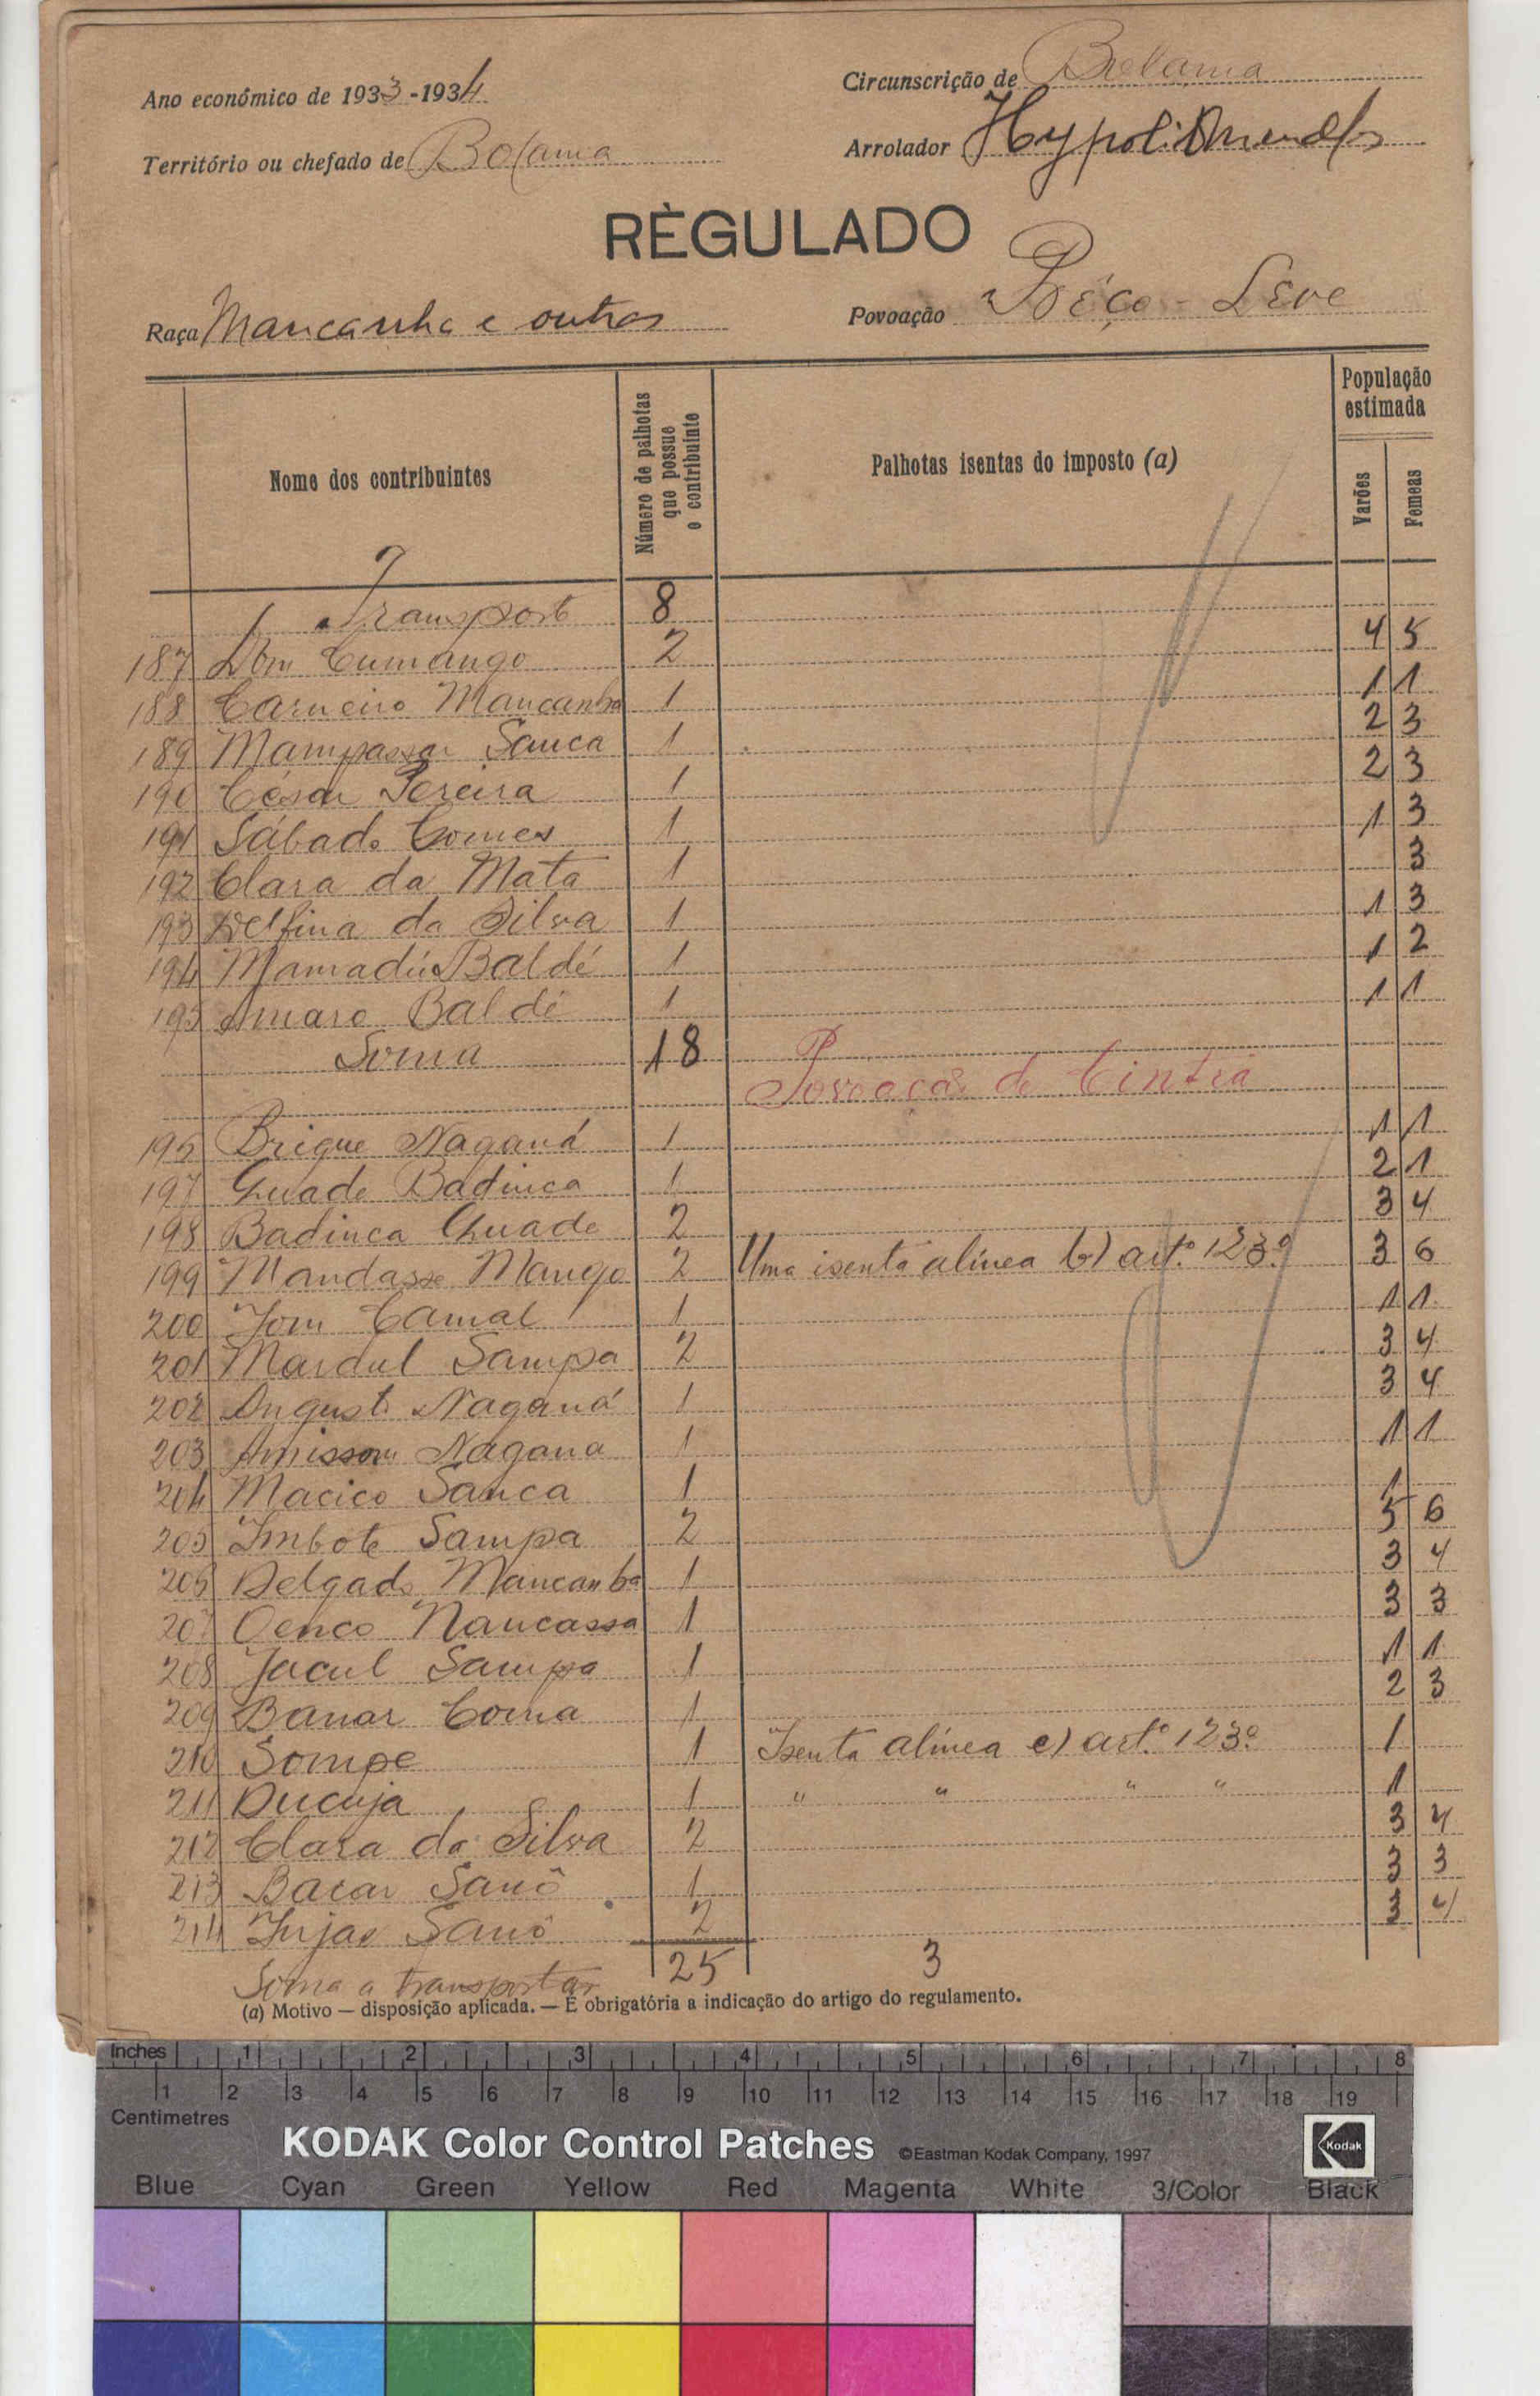 Ano económico de 1933-1934
Circunscrição de Bolama
Território ou chefado de Bolama
Arrolador Hypolit Mendes
RÈGULADO
Raça Mancanha e outros
Povoação Leve
Nome dos contribuintes
Número de palhotas que possue o contribuinte
Palhotas isentas do imposto (a)
População estimada
Varões
Femeas
Transporte 8
187 Dom Cumango 2 4 5
188 Carneiro Mancanha 1 1 1
189 Mampassar Sanca 1 2 3
190 César Pereira 1 2 3
191 Sábado Gomes 1 1 3
192 Clara da Mata 1 3
193 Delfina da Silva 1 1 3
194 Mamadú Baldé 1 1 2
195 Amaro Baldé 1 1 1
Soma 18
Povoação de Cintra
196 Brique Naganá 1 1 1
197 Quade Badinca 1 2 1
198 Badinca Quade 2 3 4
199 Mandasse Mango 2 Uma isenta alínea b) artº 123º 3 6
200 Jom Camal 1 1 1
201 Mardul Sampa 2 3 4
202 Augusto Naganá 1 3 4
203 Amissom Nagana 1 1 1
204 Macico Sanca 1 1
205 Imbote Sampa 2 5 6
206 Delgado Mancanha 1 3 4
207 Oenco Nancassa 1 3 3
208 Jacul Sampa 1 1 1
209 Banar Coma 1 2 3
210 Sompe 1 Isenta alínea e) artº 123º 1
211 Ducuja 1 " " " " 1
212 Clara da Silva 2 3 4
213 Bacar Sanô 1 3 3
214 Injai Sanô 2 3 4
Soma a transportar 25 3
(a) Motivo — disposição aplicada. — É obrigatória a indicação do artigo do regulamento.
Inches 1 2 3 4 5 6 7 8
1 2 3 4 5 6 7 8 9 10 11 12 13 14 15 16 17 18 19
Centimetres
KODAK Color Control Patches ©Eastman Kodak Company, 1997 Kodak
Blue Cyan Green Yellow Red Magenta White 3/Color Black